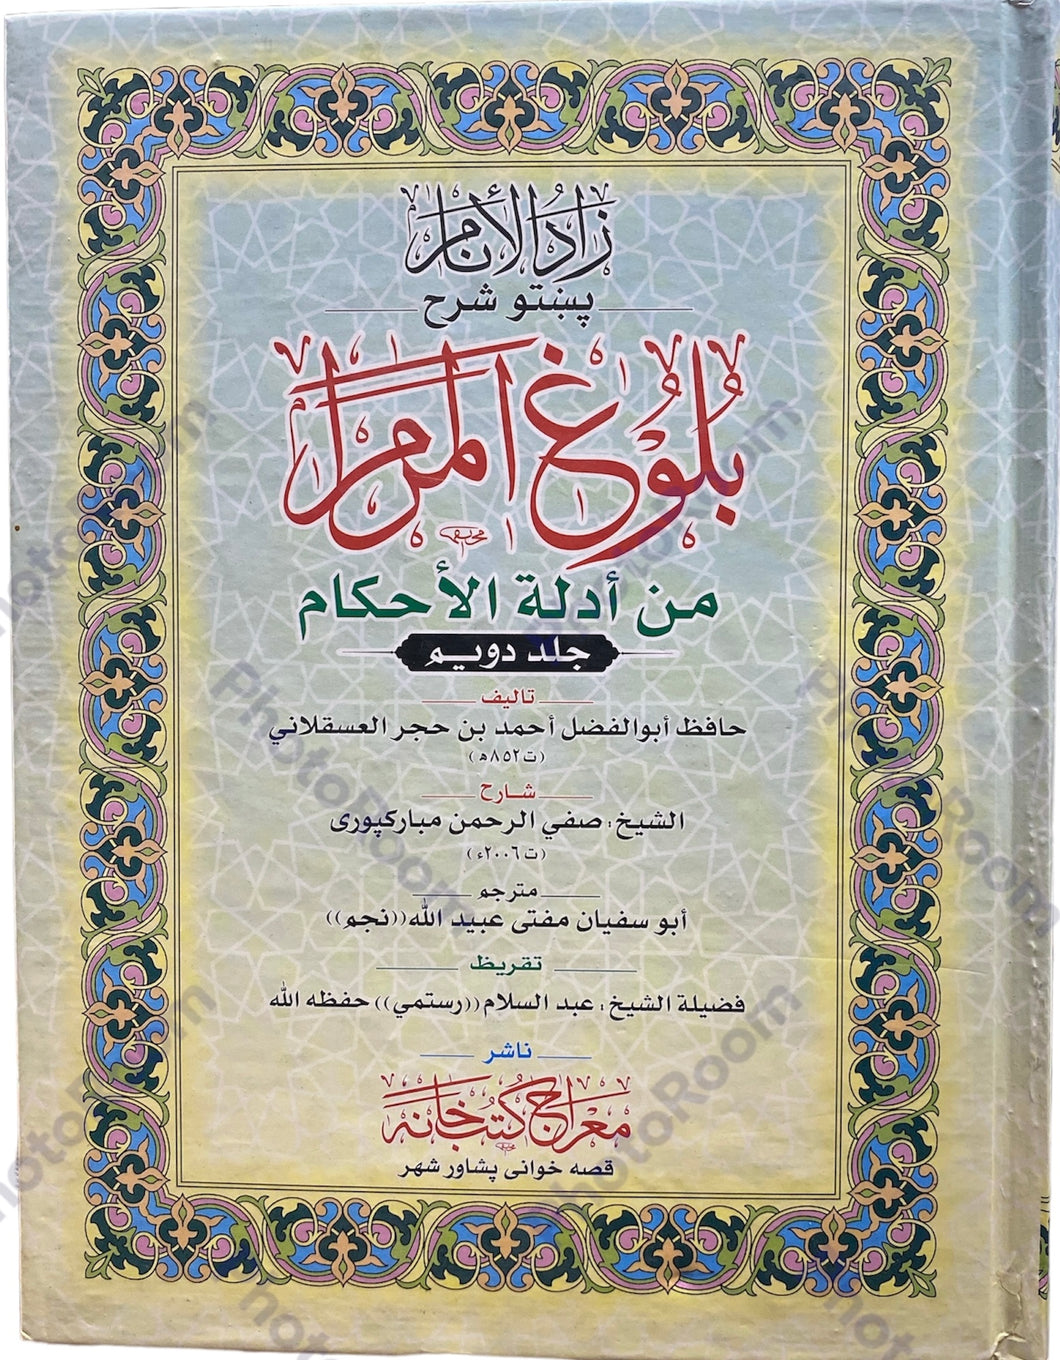 زادُ الأنام
پښتو شرح
بُلُوْغُ المرام
من أدلة الأحكام
جلد دويم
تاليف
حافظ أبوالفضل أحمد بن حجر العسقلاني
(ت٨٥٢ھ)
شارح
الشيخ: صفي الرحمن مبارکپوری
(ت٢٠٠٦ء)
مترجم
أبو سفيان مفتی عبيد الله((نجم))
تقريظ
فضيلة الشيخ: عبد السلام((رستمي)) حفظه الله
ناشر
معراج کتب خانه
قصه خوانی پشاور شهر
PhotoRoom